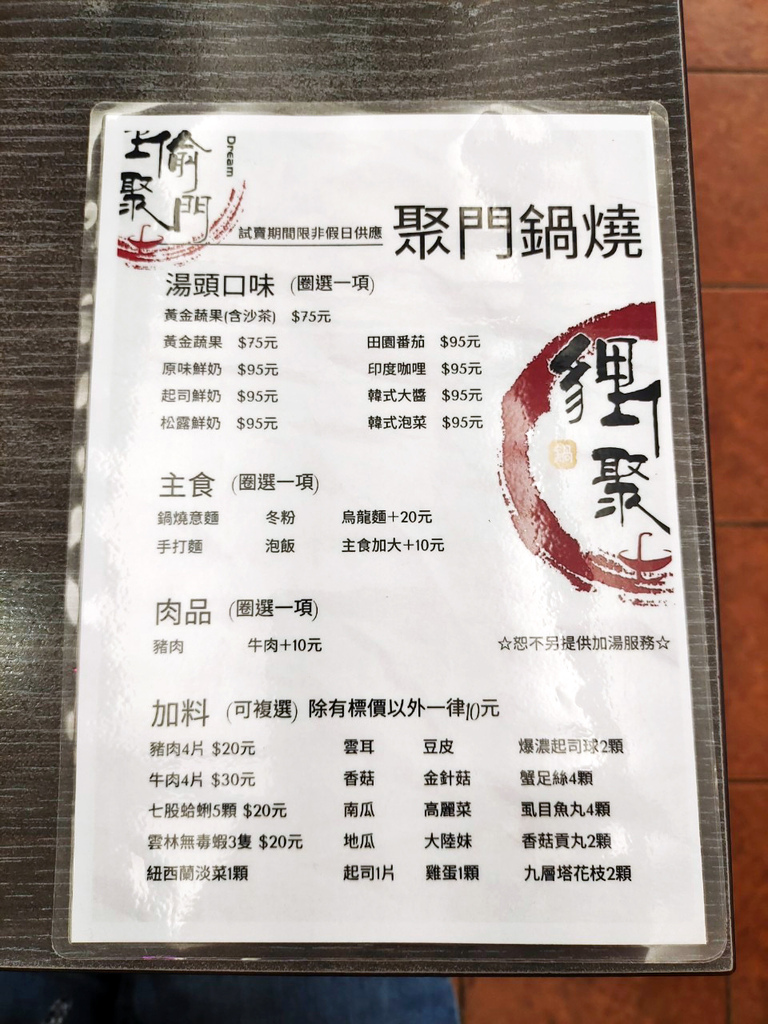 偷
門
聚
Dream
試賣期間限非假日供應 聚門鍋燒
湯頭口味 (圈選一項)
黃金蔬果(含沙茶) $75元
黃金蔬果 $75元 田園番茄 $95元
原味鮮奶 $95元 印度咖哩 $95元
起司鮮奶 $95元 韓式大醬 $95元
松露鮮奶 $95元 韓式泡菜 $95元
聚
鍋
主食 (圈選一項)
鍋燒意麵 冬粉 烏龍麵+20元
手打麵 泡飯 主食加大+10元
肉品 (圈選一項)
豬肉 牛肉+10元
☆恕不另提供加湯服務☆
加料 (可複選) 除有標價以外一律10元
豬肉4片 $20元 雲耳 豆皮 爆濃起司球2顆
牛肉4片 $30元 香菇 金針菇 蟹足絲4顆
七股蛤蜊5顆 $20元 南瓜 高麗菜 虱目魚丸4顆
雲林無毒蝦3隻 $20元 地瓜 大陸妹 香菇貢丸2顆
紐西蘭淡菜1顆 起司1片 雞蛋1顆 九層塔花枝2顆